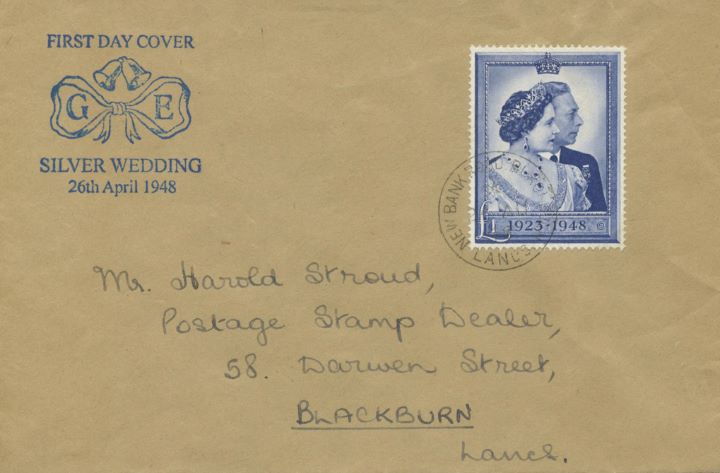 FIRST DAY COVER
G E
SILVER WEDDING
26th April 1948
£1 1923-1948
NEW BANK ROAD
LANCS.
Mr. Harold Stroud,
Postage Stamp Dealer,
58. Darwen Street,
BLACKBURN
Lancs.